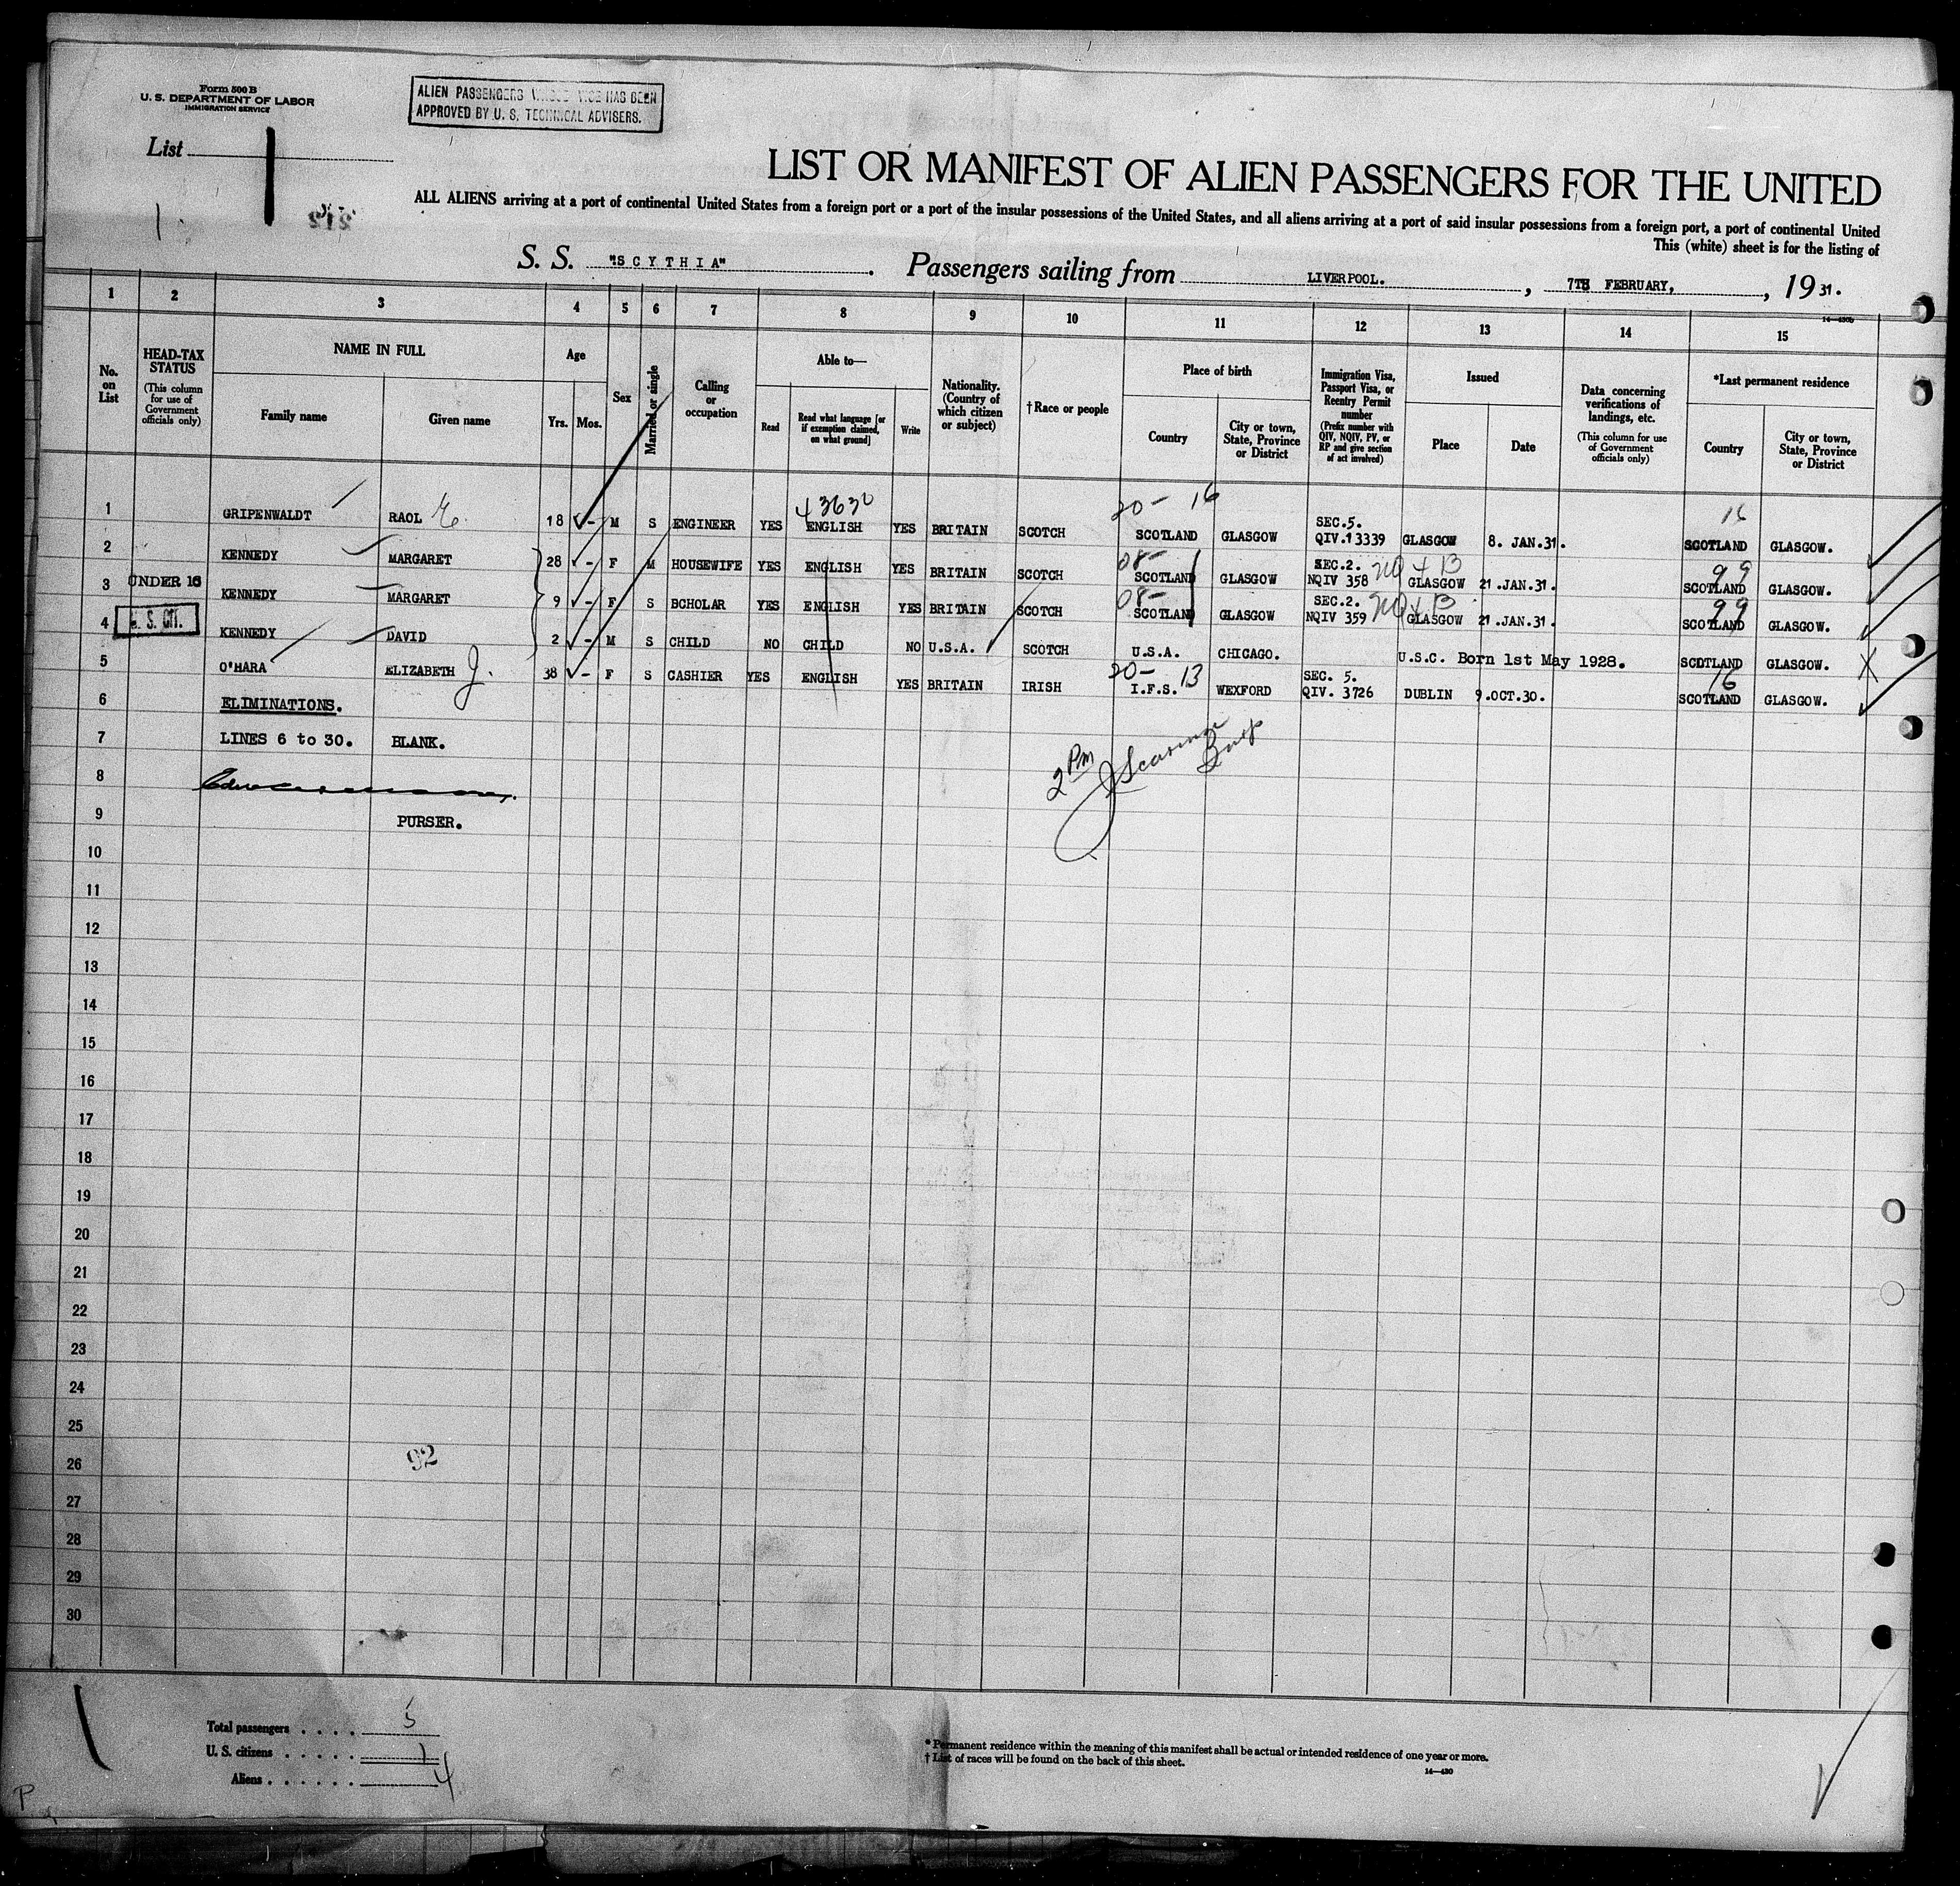 Form 500 B
U. S. DEPARTMENT OF LABOR
IMMIGRATION SERVICE
ALIEN PASSENGERS WHOSE VISE HAS BEEN
APPROVED BY U. S. TECHNICAL ADVISERS.
List 1
1.
LIST OR MANIFEST OF ALIEN PASSENGERS FOR THE UNITED
ALL ALIENS arriving at a port of continental United States from a foreign port or a port of the insular possessions of the United States, and all aliens arriving at a port of said insular possessions from a foreign port, a port of continental United
This (white) sheet is for the listing of
S. S. "SCYTHIA". Passengers sailing from LIVERPOOL., 7TH FEBRUARY, 1931.
14—430b
1 2 3 4 5 6 7 8 9 10 11 12 13 14 15
No. on List
HEAD-TAX STATUS
(This column for use of Government officials only)
NAME IN FULL
Family name
Given name
Age
Yrs. Mos.
Sex
Married or single
Calling or occupation
Able to—
Read
Read what language [or if exemption claimed, on what ground]
Write
Nationality. (Country of which citizen or subject)
†Race or people
Place of birth
Country
City or town, State, Province or District
Immigration Visa, Passport Visa, or Reentry Permit number
(Prefix number with QIV, NQIV, PV, or RP and give section of act involved)
Issued
Place
Date
Data concerning verifications of landings, etc.
(This column for use of Government officials only)
*Last permanent residence
Country
City or town, State, Province or District
43630 20- 16 16
1 GRIPENWALDT RAOL E. 18 - M S ENGINEER YES ENGLISH YES BRITAIN SCOTCH SCOTLAND GLASGOW SEC.5. QIV.13339 GLASGOW 8. JAN.31. SCOTLAND GLASGOW.
08- 99
2 KENNEDY MARGARET 28 - F M HOUSEWIFE YES ENGLISH YES BRITAIN SCOTCH SCOTLAND GLASGOW SEC.2. NQIV 358 GLASGOW 21 .JAN.31. SCOTLAND GLASGOW.
08- 99
3 UNDER 16 KENNEDY MARGARET 9 - F S BCHOLAR YES ENGLISH YES BRITAIN SCOTCH SCOTLAND GLASGOW SEC.2. NQIV 359 GLASGOW 21 .JAN.31. SCOTLAND GLASGOW.
4 U. S. CIT. KENNEDY DAVID 2 - M S CHILD NO CHILD NO U.S.A. SCOTCH U.S.A. CHICAGO. U.S.C. Born 1st May 1928. SCOTLAND GLASGOW.
20- 13 16
5 O'HARA ELIZABETH J. 38 - F S CASHIER YES ENGLISH YES BRITAIN IRISH I.F.S. WEXFORD SEC. 5. QIV. 3726 DUBLIN 9.OCT.30. SCOTLAND GLASGOW.
6 ELIMINATIONS.
7 LINES 6 to 30. BLANK.
2 PM
8
9 PURSER.
10
11
12
13
14
15
16
17
18
19
20
21
22
23
24
25
26 92
27
28
29
30
Total passengers . . . . 5
U. S. citizens . . . . . 1
Aliens . . . . . . 4
* Permanent residence within the meaning of this manifest shall be actual or intended residence of one year or more.
† List of races will be found on the back of this sheet.
14—430
P